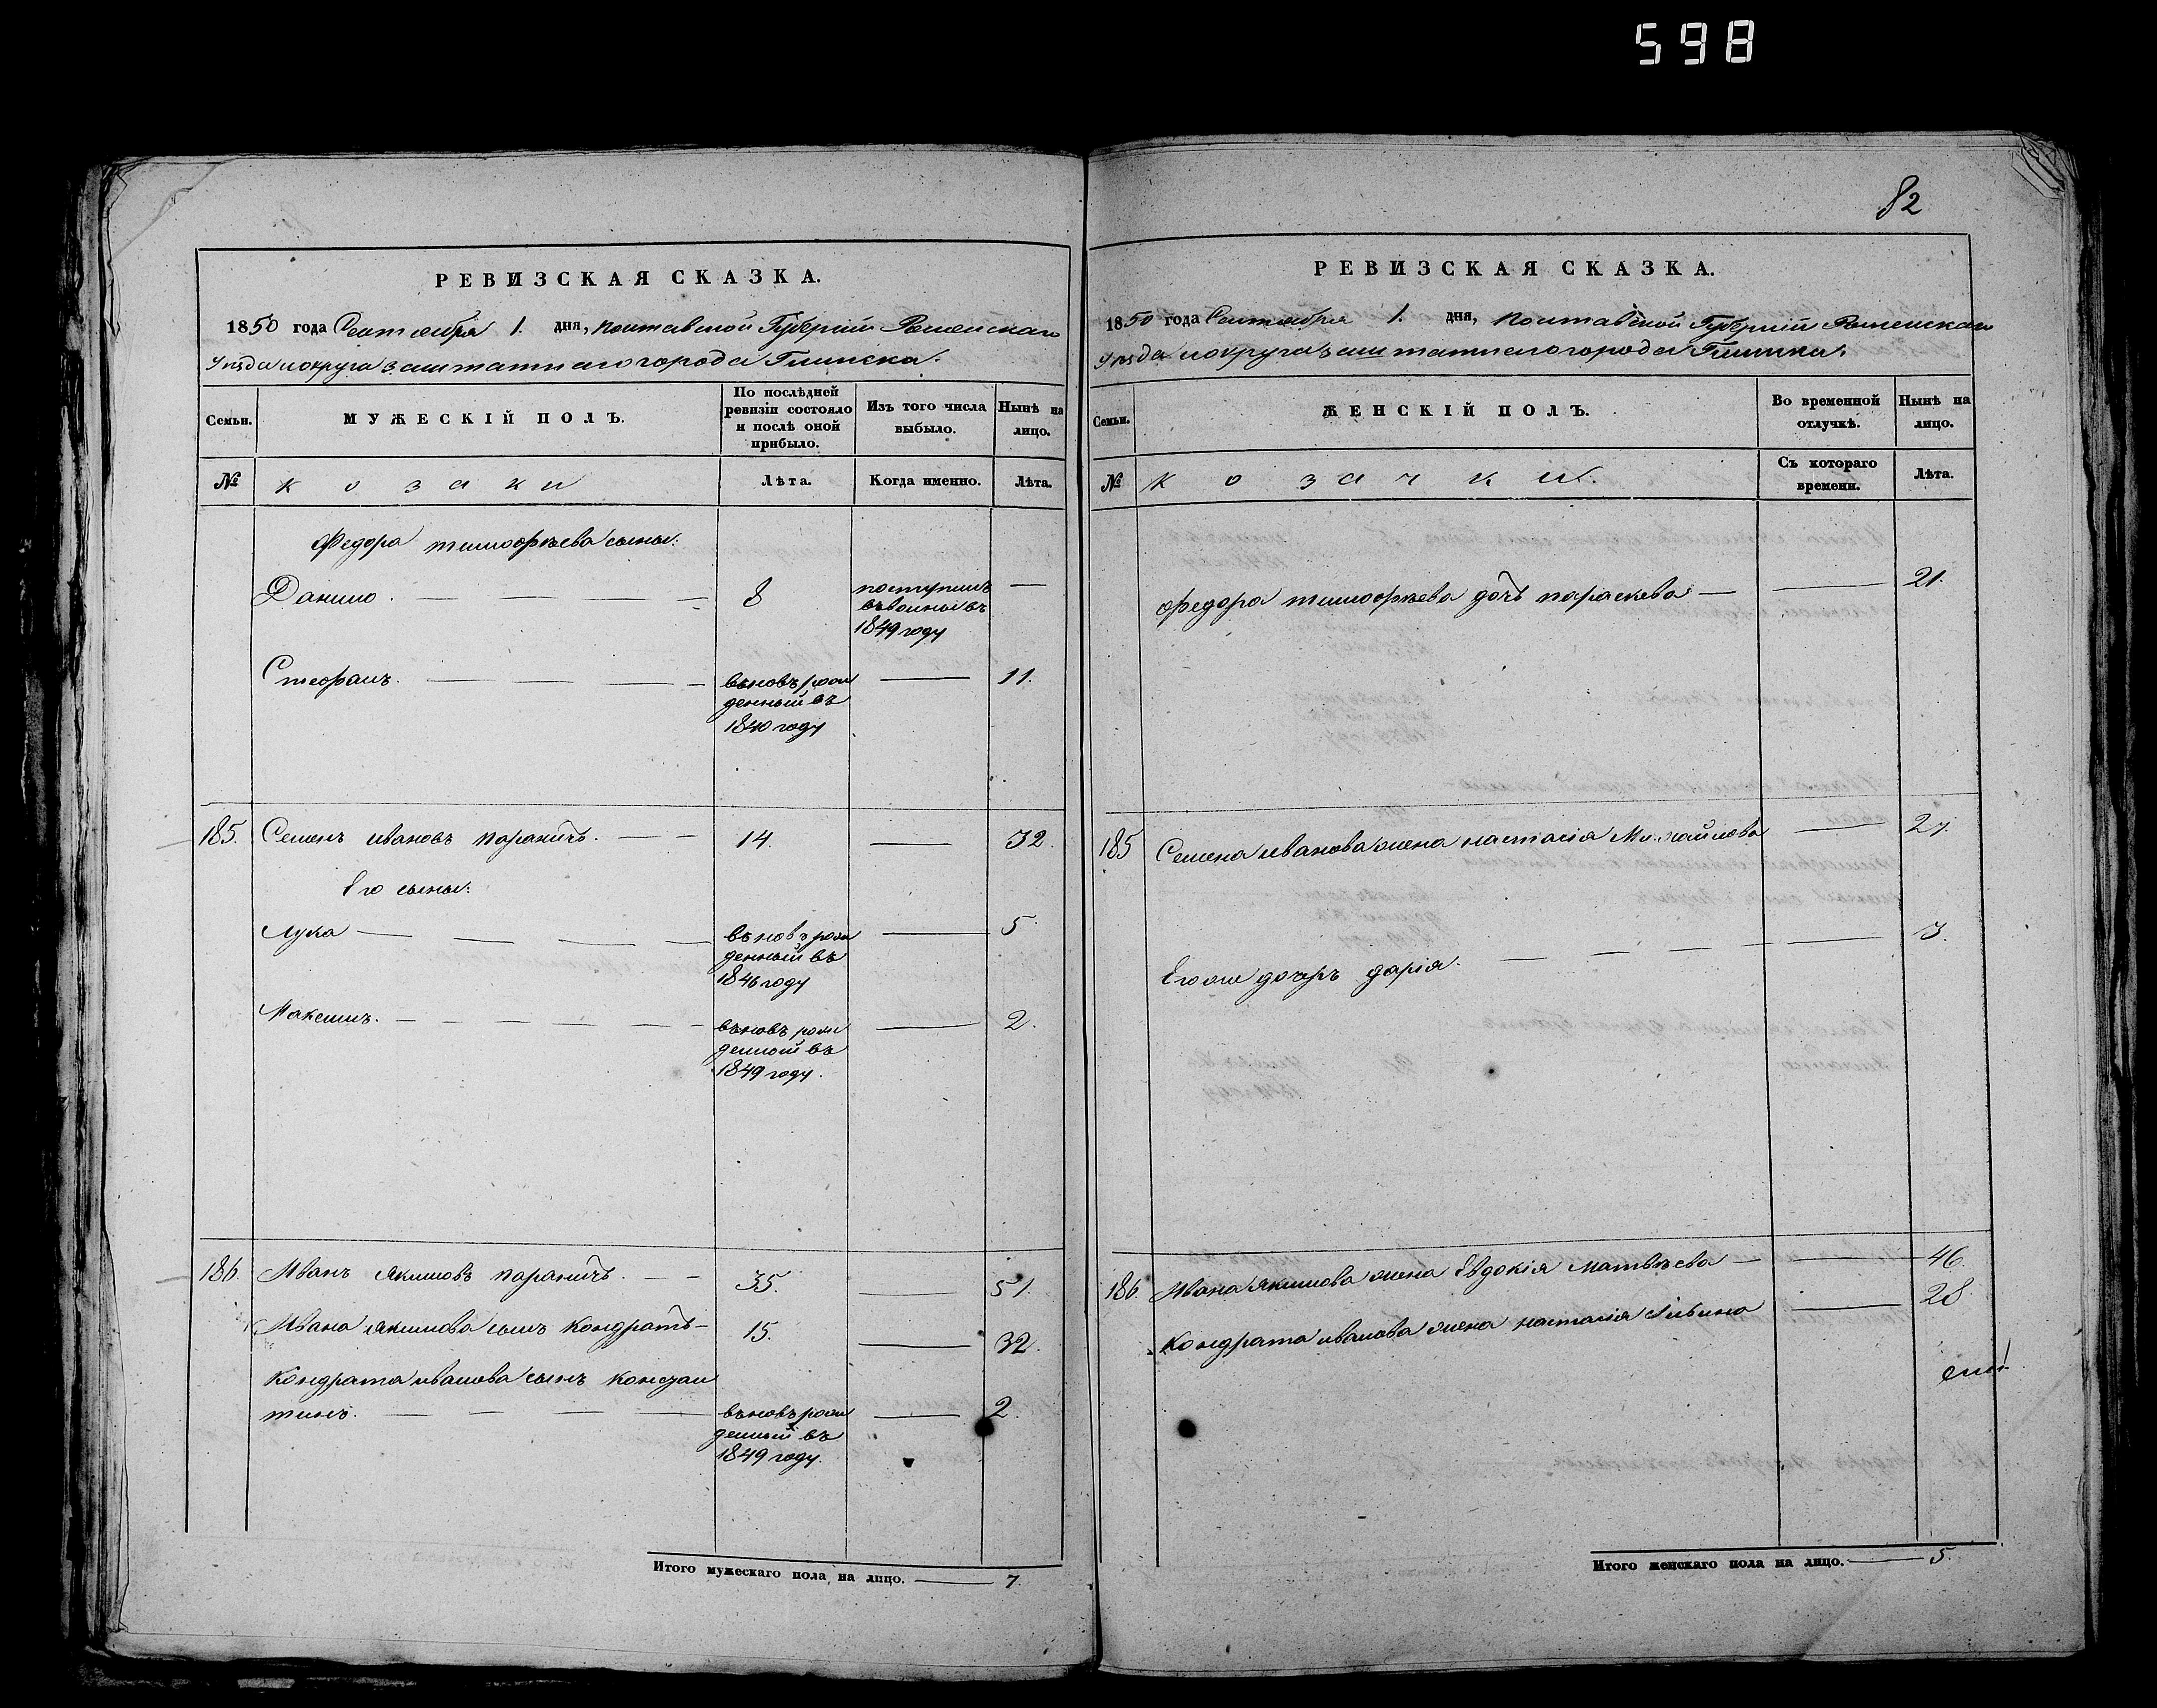 598
82
РЕВИЗСКАЯ СКАЗКА.
1850 года Сентября 1. дня, Полтавской Губерніи Роменскаго
Уѣзда и округа заштатнаго города Глинска.
Семьи. МУЖЕСКІЙ ПОЛЪ. По послѣдней ревизіи состояло и послѣ оной прибыло. Изъ того числа выбыло. Нынѣ на лицо.
№ козаки Лѣта. Когда именно. Лѣта.
Федора тимофѣева сыны:
Данило. 8 поступилъ
въ 
1849 году
Стефанъ. вьновь рож 11.
денный въ
1840 году
185. Семенъ ивановъ параничь. 14. 32.
Его сыны:
Лука вьновь рож 5
денный въ
1846 году
Максимъ. вьновь рож 2.
денный въ
1849 году.
186. Иванъ Якимовъ параничь. 35. 51.
Ивана Якимова сынъ Кондратъ 15. 32.
Кондрата иванова сынъ констан
тинъ. вьновь рож 2.
денный въ
1849 году.
Итого мужескаго пола на лицо. 7.
РЕВИЗСКАЯ СКАЗКА.
1850 года Сентября 1. дня, Полтавской Губерніи Роменскаго
Уѣзда и округа заштатнаго города Глинска.
Семьи. ЖЕНСКІЙ ПОЛЪ. Во временной отлучкѣ. Нынѣ на лицо.
№ козачки. Съ котораго времени. Лѣта.
Федора тимофѣева дочь параскева 21.
185 Семена иванова жена настасія Михайлова 27.
Его же дочерь дарія. 3.
186. Ивана Якимова жена Евдокія матвѣева 46.
Кондрата иванова жена настасія Ильина 28
Итого женскаго пола на лицо. 5.